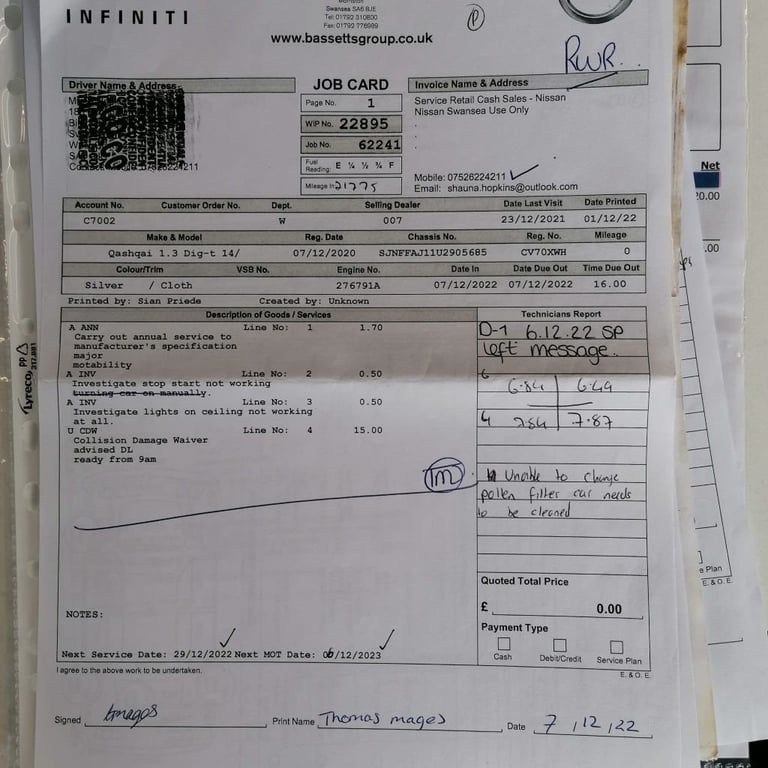 INFINITI
Swansea SA6 8JE
Tel: 01792 310800
Fax: 01792 776989
www.bassettsgroup.co.uk
P
RWR..
Driver Name & Address
JOB CARD
Invoice Name & Address
Page No. 1
Service Retail Cash Sales - Nissan
Nissan Swansea Use Only
WIP No. 22895
Job No. 62241
Fuel Reading: E ¼ ½ ¾ F
Mobile: 07526224211
Mileage In 21775
Email: shauna.hopkins@outlook.com
Account No. Customer Order No. Dept. Selling Dealer Date Last Visit Date Printed
C7002 W 007 23/12/2021 01/12/22
Make & Model Reg. Date Chassis No. Reg. No. Mileage
Qashqai 1.3 Dig-t 14/ 07/12/2020 SJNFFAJ11U2905685 CV70XWH 0
Colour/Trim VSB No. Engine No. Date In Date Due Out Time Due Out
Silver / Cloth 276791A 07/12/2022 07/12/2022 16.00
Printed by: Sian Priede Created by: Unknown
Description of Goods / Services
A ANN Line No: 1 1.70
Carry out annual service to
manufacturer's specification
major
motability
A INV Line No: 2 0.50
Investigate stop start not working
turning car on manually.
A INV Line No: 3 0.50
Investigate lights on ceiling not working
at all.
U CDW Line No: 4 15.00
Collision Damage Waiver
advised DL
ready from 9am
m
Technicians Report
D-1 6.12.22 SP
left message.
6.84 6.49
7.84 7.87
Unable to change
pollen filter car needs
to be cleaned
Quoted Total Price
£ 0.00
Payment Type
Cash Debit/Credit Service Plan
E. & O. E.
NOTES:
Next Service Date: 29/12/2022 Next MOT Date: 06/12/2023
I agree to the above work to be undertaken.
Signed tmages Print Name Thomas mages Date 7,12,22
Net
00
e Plan
E. & O. E.
Lyreco, PP